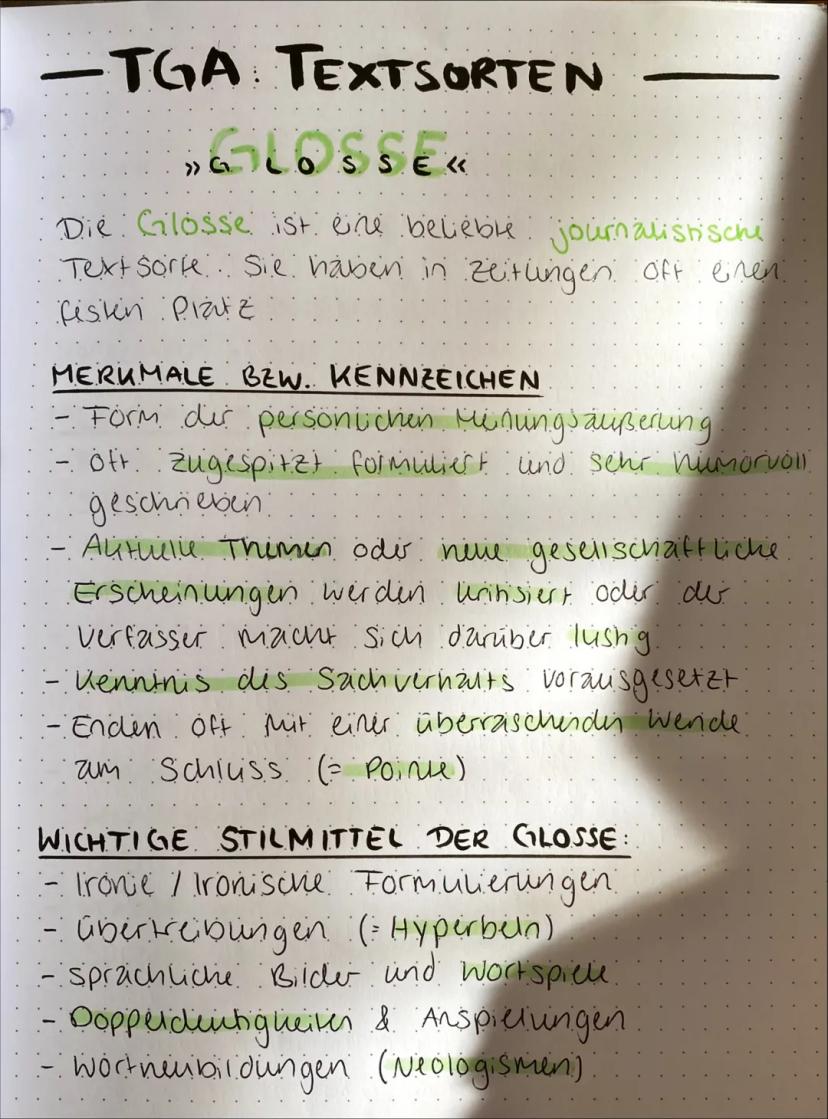 TGA: TEXTSORTEN
GLOSSE
»GLOSSE«
Die Glosse ist eine beliebte journalistische
Textsorte. Sie haben in Zeitungen oft einen
festen Platz
MERKMALE BZW. KENNZEICHEN
- Form der persönlichen Meinungsäußerung
- oft zugespitzt formuliert und sehr humorvoll
geschrieben
- Aktuelle Themen oder neue gesellschaftliche
Erscheinungen werden kritisiert oder der
Verfasser macht sich darüber lustig
- Kenntnis des Sachverhalts vorausgesetzt
- Enden oft mit einer überraschenden Wende
am Schluss (= Pointe)
WICHTIGE STILMITTEL DER GLOSSE:
- Ironie / Ironische Formulierungen
- Übertreibungen (= Hyperbeln)
- sprachliche Bilder und Wortspiele
- Doppeldeutigkeiten & Anspielungen
- Wortneubildungen (Neologismen)